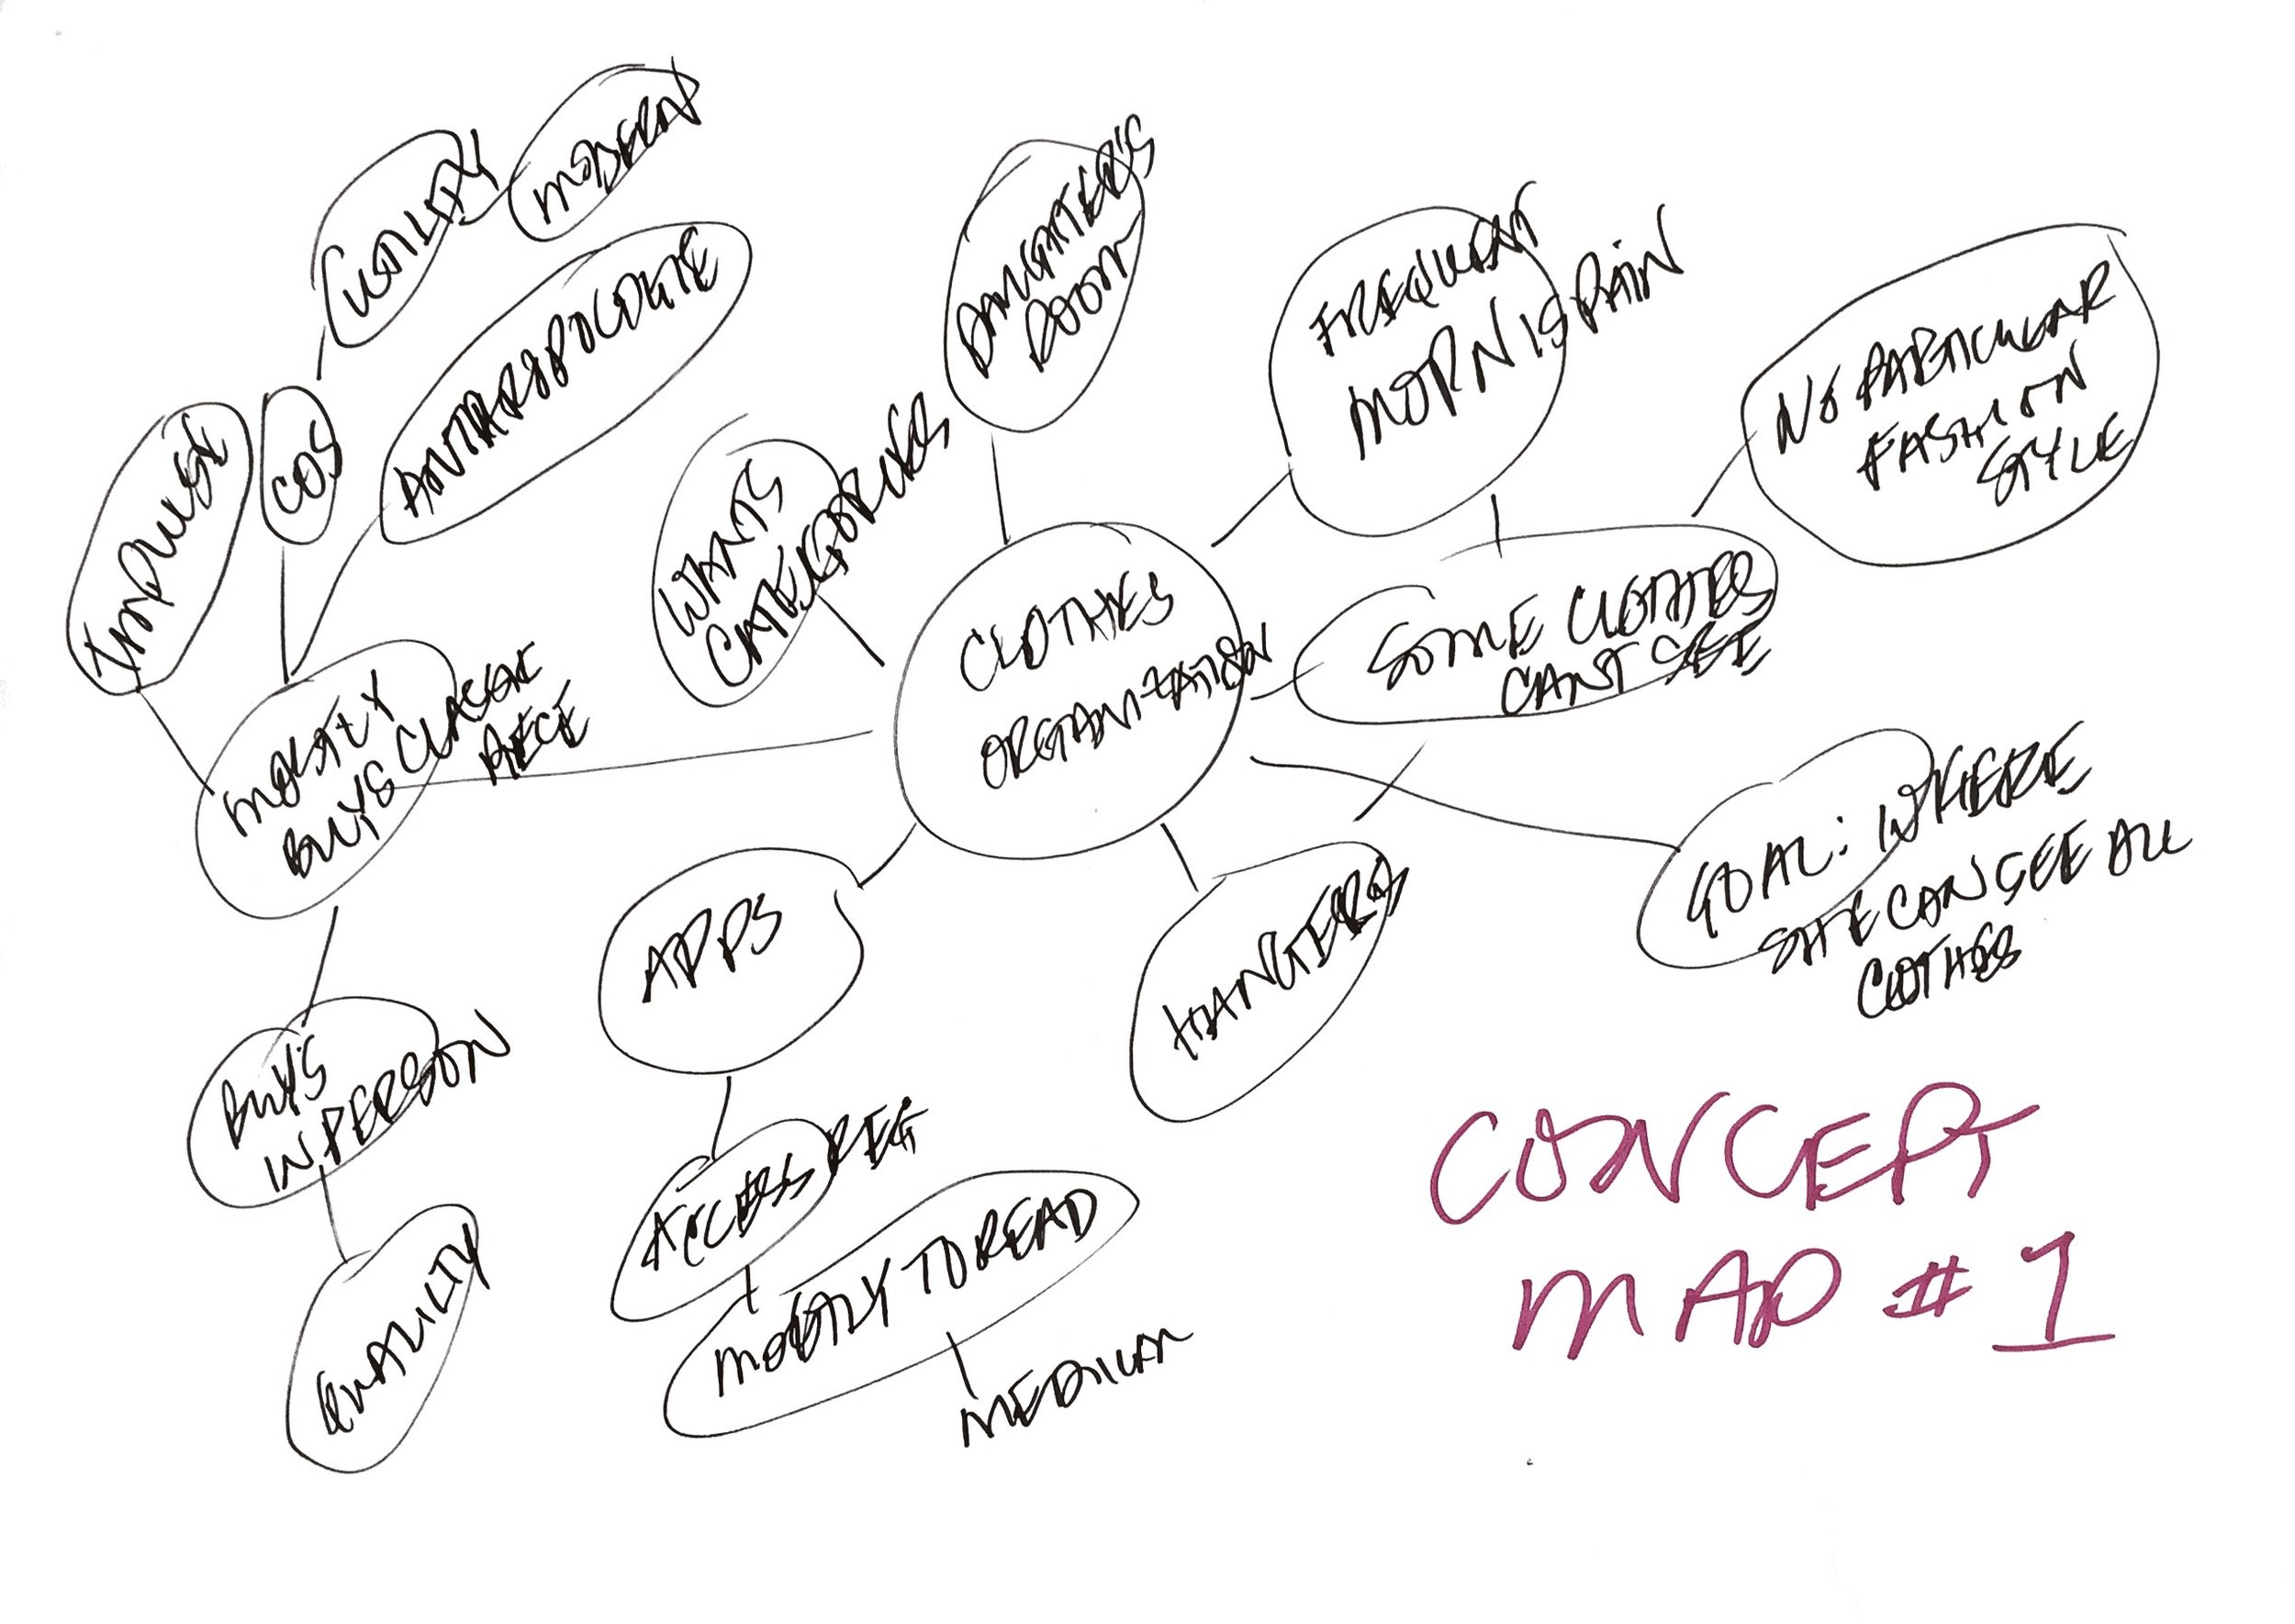 MODERN
QUALITY
ANTHROPOLOGIE
COS
IMPULSE
MOSTLY
BUYS CLASSIC
PIECE
BUYS
IN PERSON
QUALITY
WANTS
CATEGORIES
DAUGHTER'S
ROOM
FREQUENT
MORN IS PAIN
NO PARTICULAR
FASHION
STYLE
CLOTHES
ORGANIZATION
SOME CLOTHES
CANT SEE
GOAL: WHERE
SHE CAN SEE ALL
CLOTHES
HANGERS
APPS
ACCESS REG
MOSTLY TO READ
MEDIUM
CONCEPT
MAP # 1